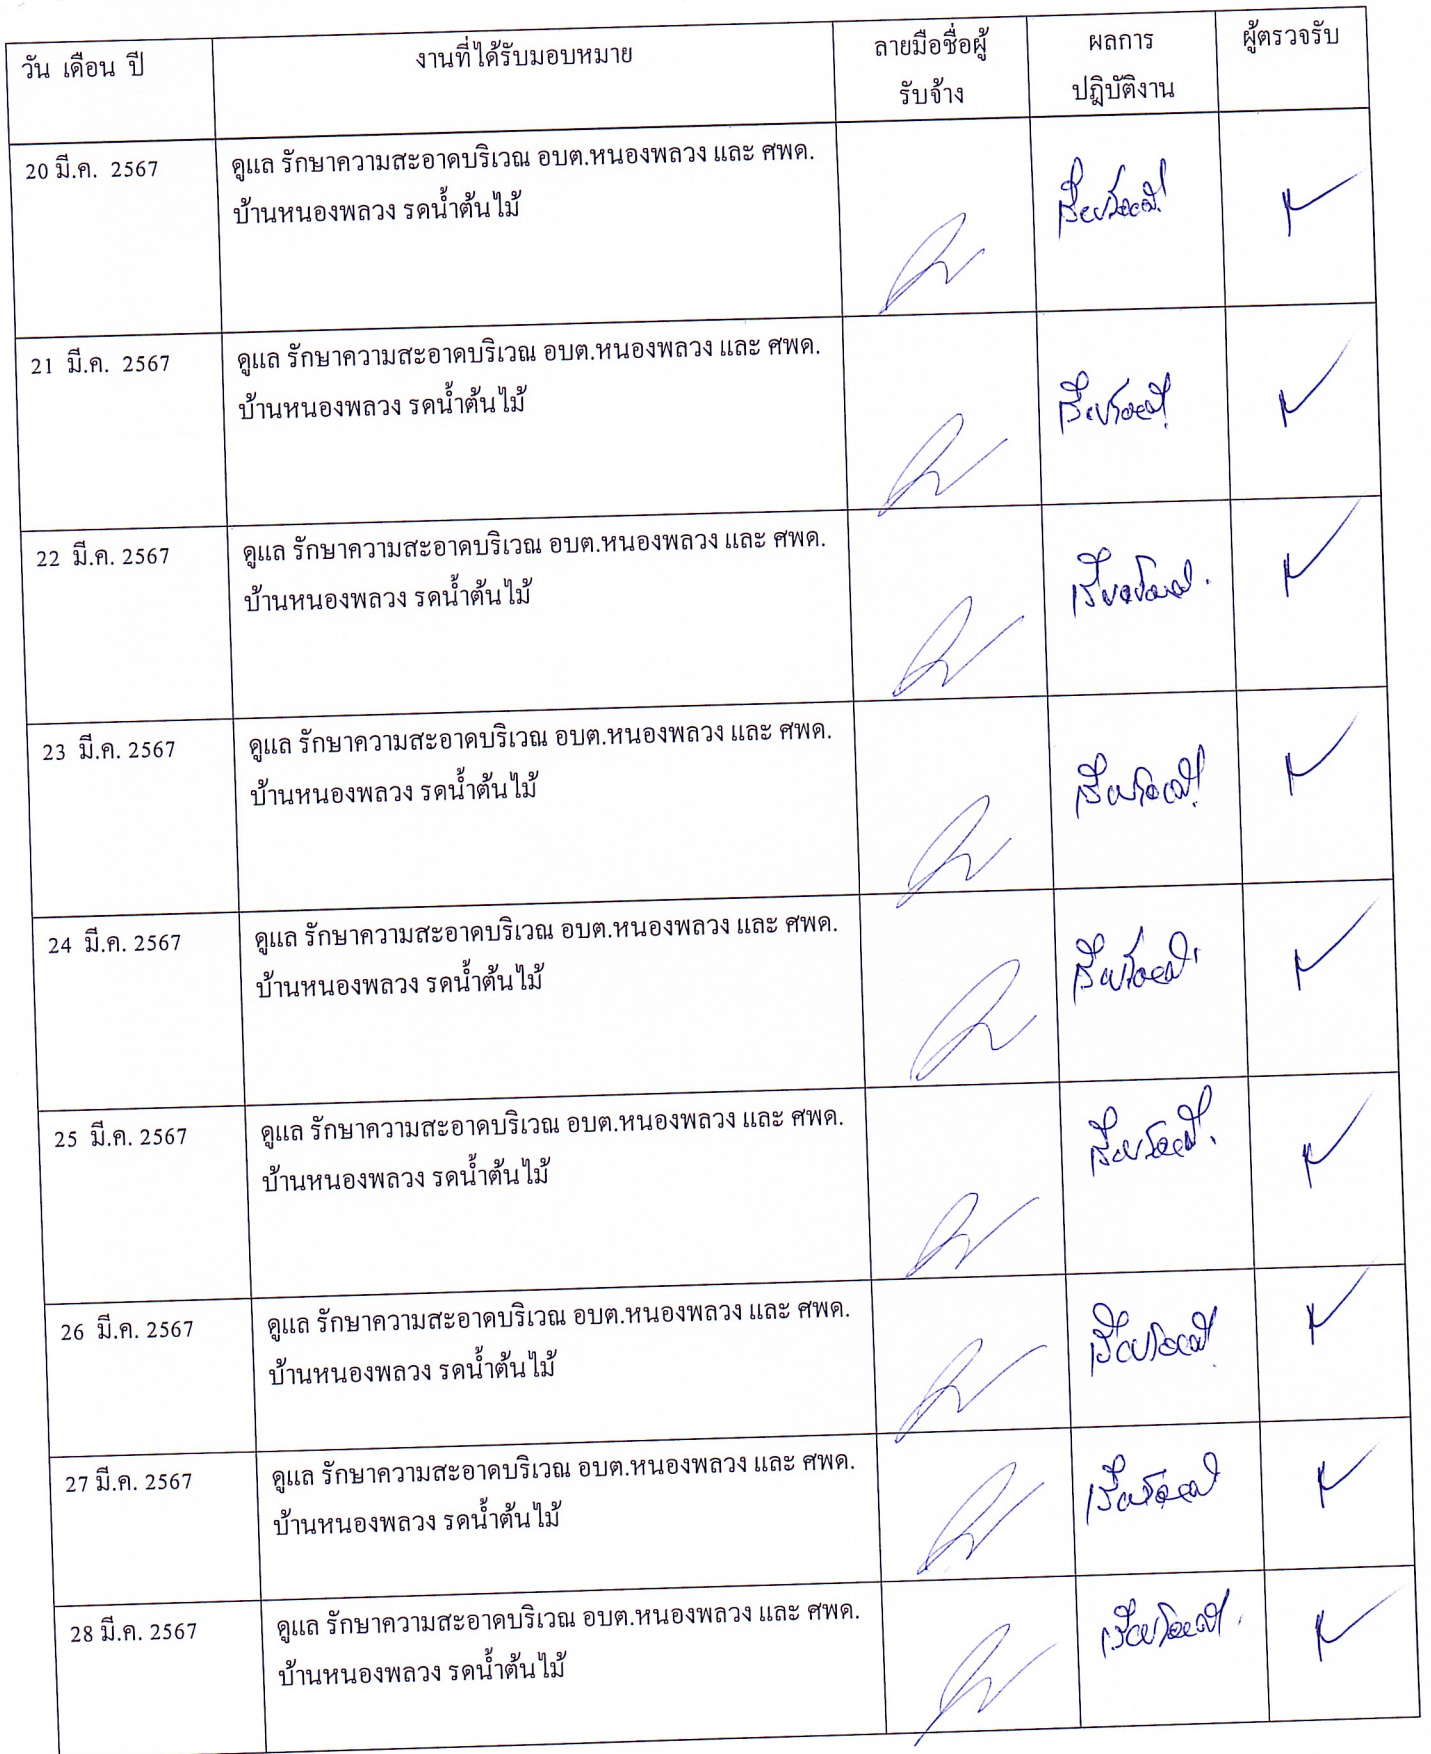 วัน เดือน ปี
งานที่ได้รับมอบหมาย
ลายมือชื่อผู้
รับจ้าง
ผลการ
ปฏิบัติงาน
ผู้ตรวจรับ
20 มี.ค. 2567
ดูแล รักษาความสะอาดบริเวณ อบต.หนองพลวง และ ศพด.
บ้านหนองพลวง รดน้ำต้นไม้
เรียบร้อยดี
21 มี.ค. 2567
ดูแล รักษาความสะอาดบริเวณ อบต.หนองพลวง และ ศพด.
บ้านหนองพลวง รดน้ำต้นไม้
เรียบร้อยดี
22 มี.ค. 2567
ดูแล รักษาความสะอาดบริเวณ อบต.หนองพลวง และ ศพด.
บ้านหนองพลวง รดน้ำต้นไม้
เรียบร้อยดี
23 มี.ค. 2567
ดูแล รักษาความสะอาดบริเวณ อบต.หนองพลวง และ ศพด.
บ้านหนองพลวง รดน้ำต้นไม้
เรียบร้อยดี
24 มี.ค. 2567
ดูแล รักษาความสะอาดบริเวณ อบต.หนองพลวง และ ศพด.
บ้านหนองพลวง รดน้ำต้นไม้
เรียบร้อยดี
25 มี.ค. 2567
ดูแล รักษาความสะอาดบริเวณ อบต.หนองพลวง และ ศพด.
บ้านหนองพลวง รดน้ำต้นไม้
เรียบร้อยดี
26 มี.ค. 2567
ดูแล รักษาความสะอาดบริเวณ อบต.หนองพลวง และ ศพด.
บ้านหนองพลวง รดน้ำต้นไม้
เรียบร้อยดี
27 มี.ค. 2567
ดูแล รักษาความสะอาดบริเวณ อบต.หนองพลวง และ ศพด.
บ้านหนองพลวง รดน้ำต้นไม้
เรียบร้อยดี
28 มี.ค. 2567
ดูแล รักษาความสะอาดบริเวณ อบต.หนองพลวง และ ศพด.
บ้านหนองพลวง รดน้ำต้นไม้
เรียบร้อยดี